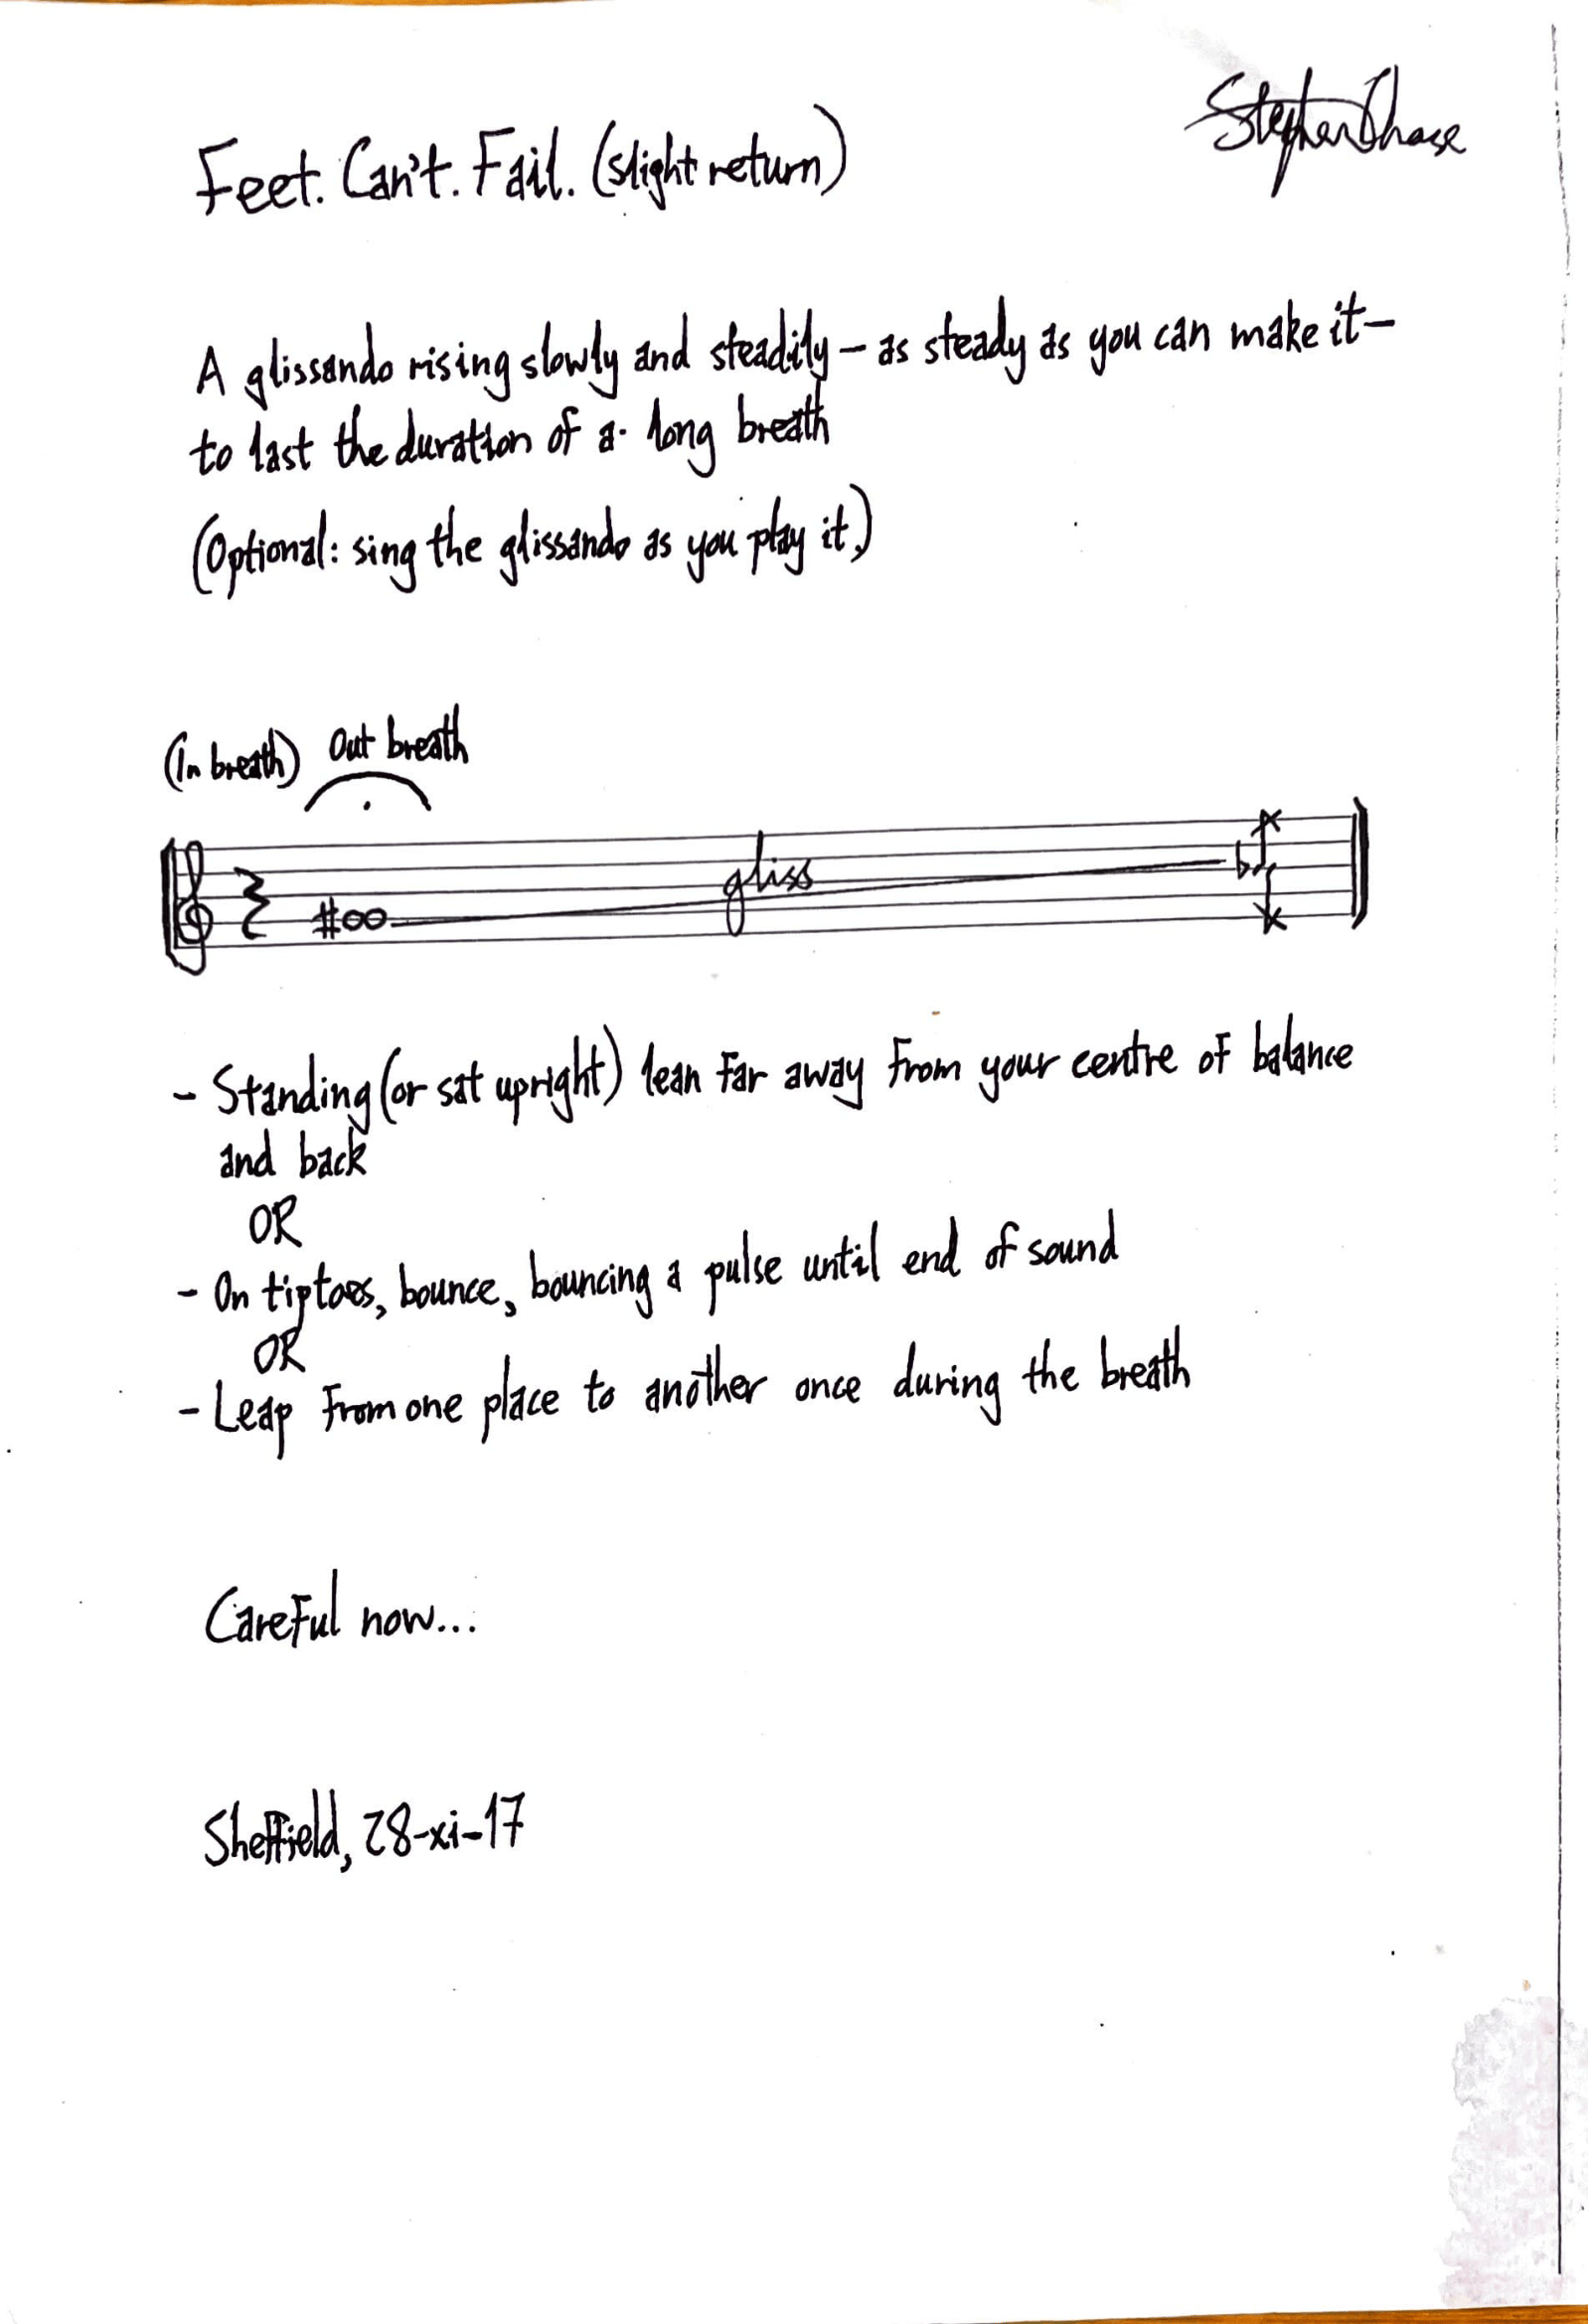 Stephen Chase
Feet. Can't. Fail. (slight return)
A glissando rising slowly and steadily – as steady as you can make it –
to last the duration of a long breath
(Optional: sing the glissando as you play it.)
(In breath) Out breath
gliss
- Standing (or sat upright) lean far away from your centre of balance
and back
OR
- On tiptoes, bounce, bouncing a pulse until end of sound
OR
- Leap from one place to another once during the breath
Careful now...
Sheffield, 28-xi-17